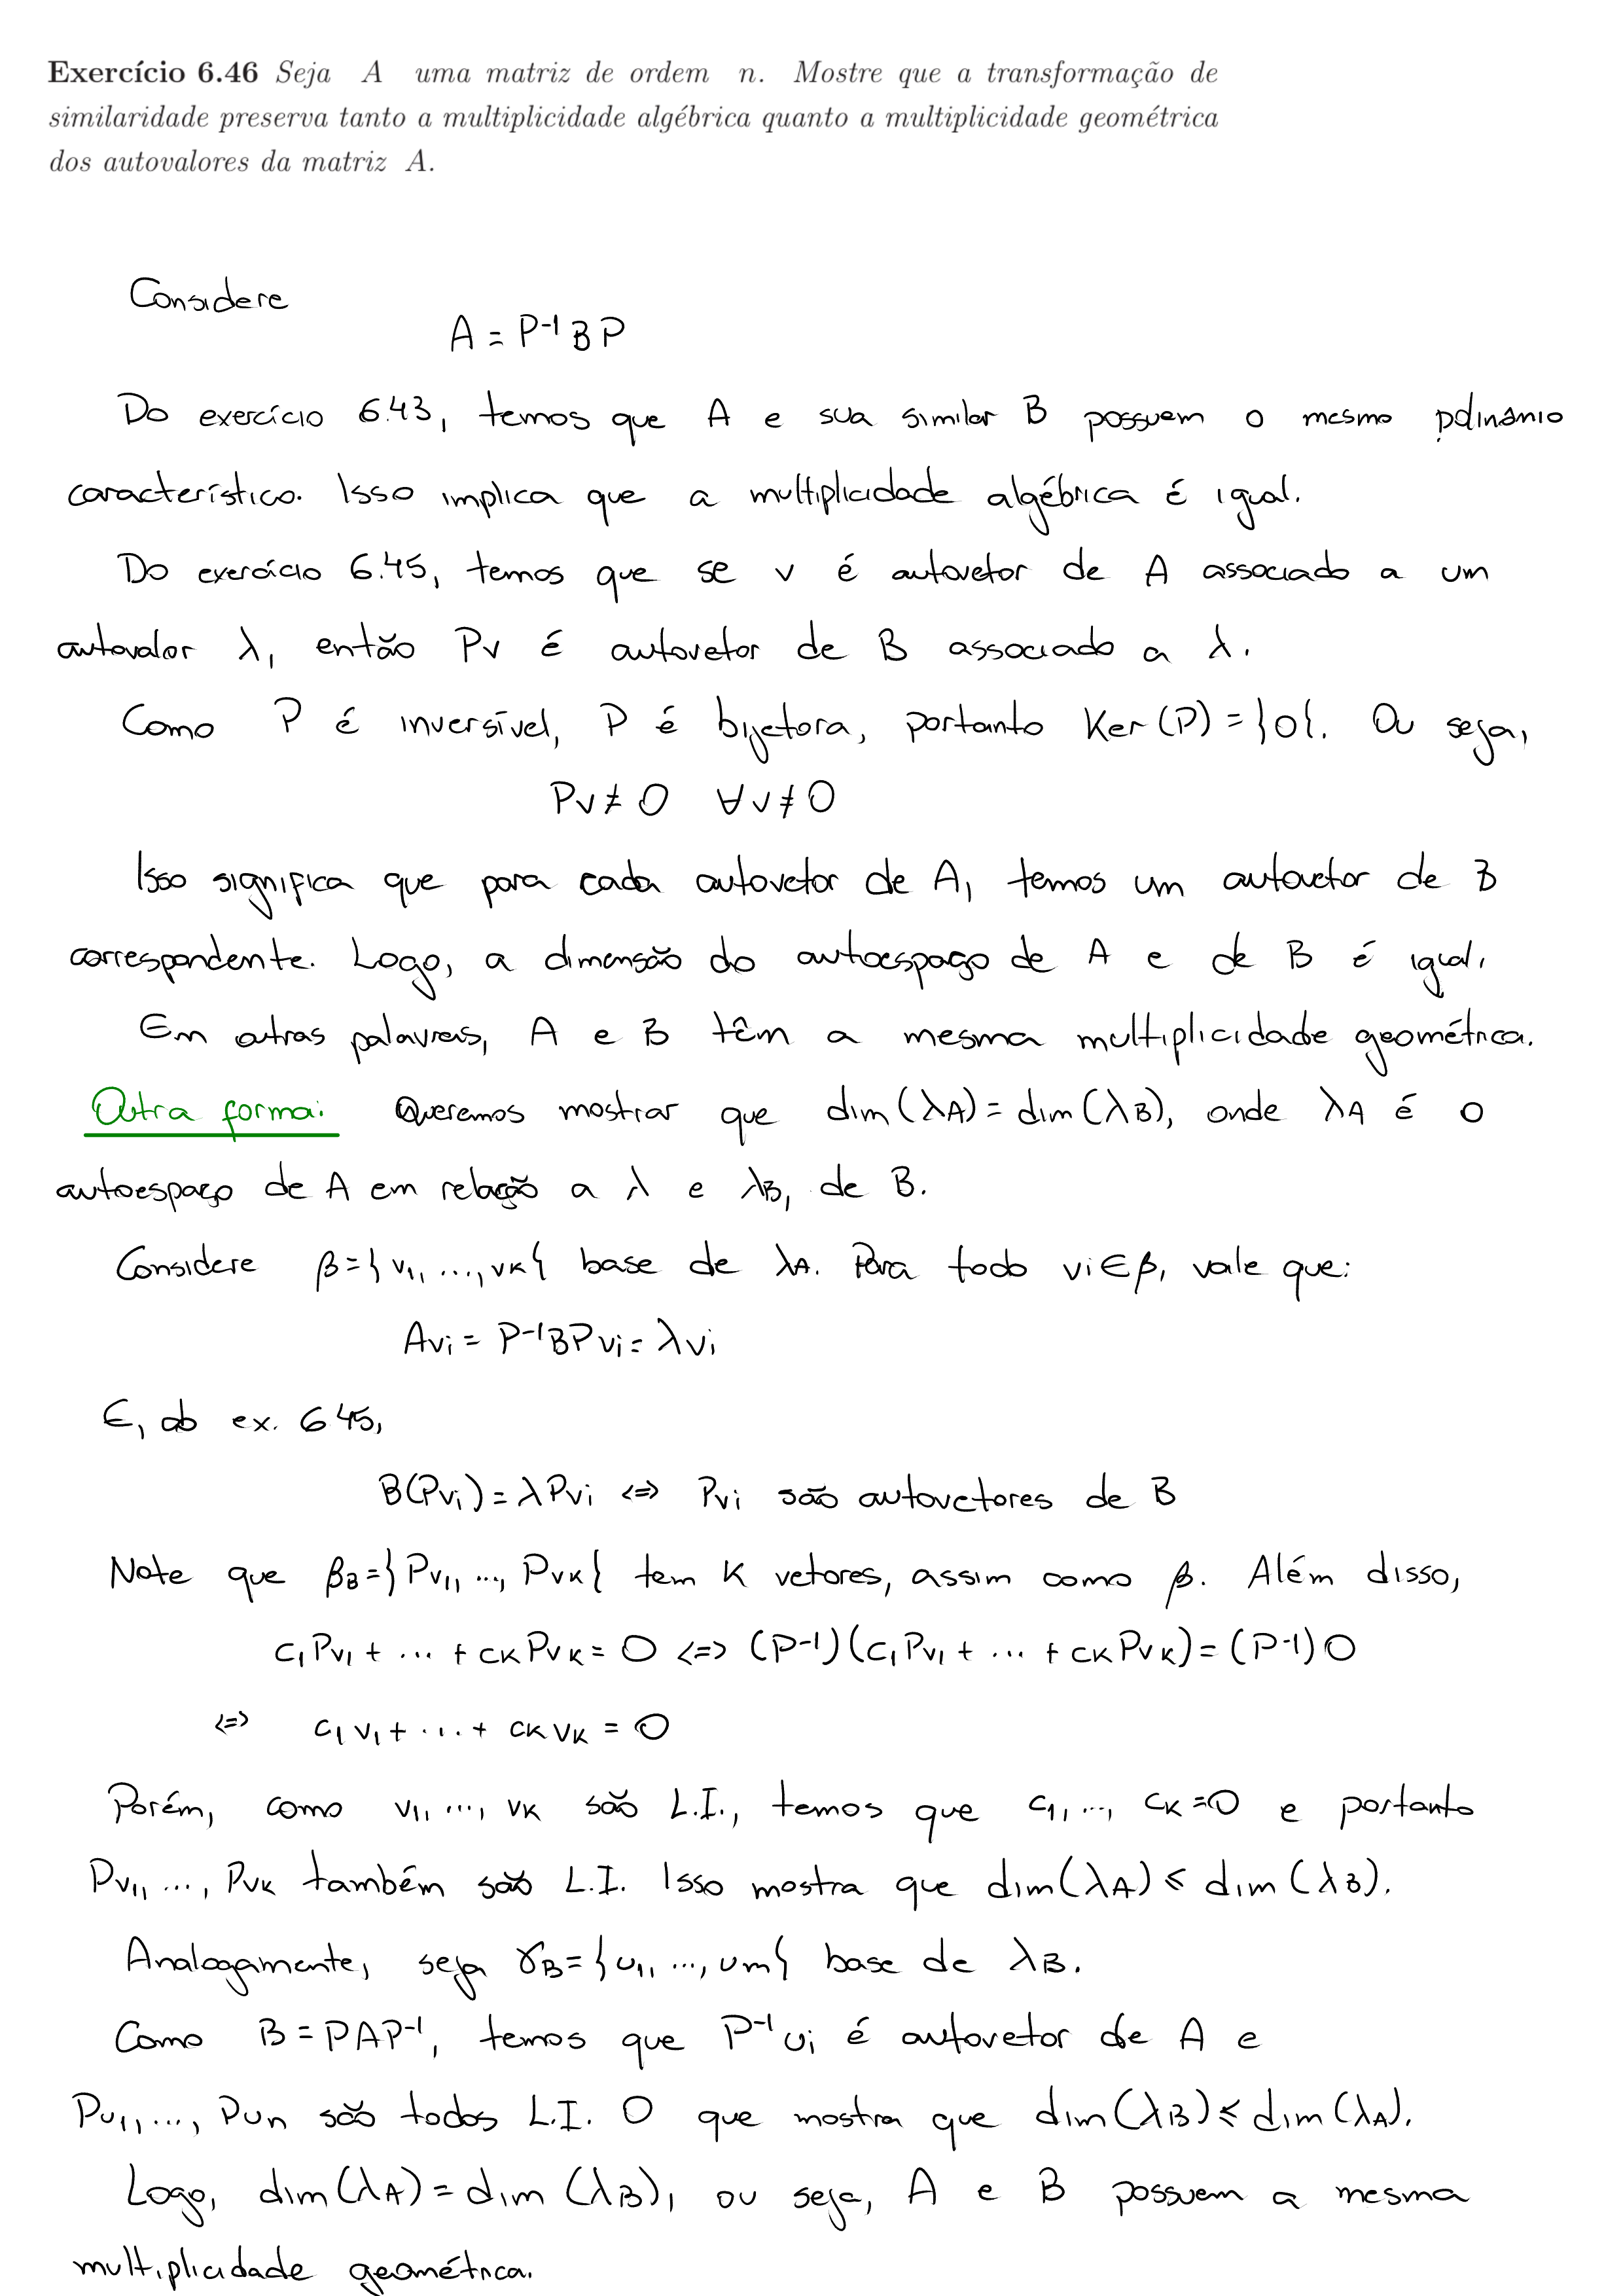 Exercício 6.46 Seja A uma matriz de ordem n. Mostre que a transformação de
similaridade preserva tanto a multiplicidade algébrica quanto a multiplicidade geométrica
dos autovalores da matriz A.
Considere
A = P⁻¹BP
Do exercício 6.43, temos que A e sua similar B possuem o mesmo polinômio
característico. Isso implica que a multiplicidade algébrica é igual.
Do exercício 6.45, temos que se v é autovetor de A associado a um
autovalor λ, então Pv é autovetor de B associado a λ.
Como P é inversível, P é bijetora, portanto Ker(P) = {0}. Ou seja,
Pv ≠ 0 ∀v ≠ 0
Isso significa que para cada autovetor de A, temos um autovetor de B
correspondente. Logo, a dimensão do autoespaço de A e de B é igual.
Em outras palavras, A e B têm a mesma multiplicidade geométrica.
Outra forma: Queremos mostrar que dim(λA) = dim(λB), onde λA é o
autoespaço de A em relação a λ e λB, de B.
Considere β = {v1, ..., vk} base de λA. Para todo vi ∈ β, vale que:
Avi = P⁻¹BPvi = λvi
E, do ex. 6 45,
B(Pvi) = λPvi <=> Pvi são autovetores de B
Note que βB = {Pv1, ..., Pvk} tem K vetores, assim como β. Além disso,
c1Pv1 + ... + ckPvk = 0 <=> (P⁻¹)(c1Pv1 + ... + ckPvk) = (P⁻¹)0
<=> c1v1 + ... + ckvk = 0
Porém, como v1, ..., vk são L.I., temos que c1, ..., ck = 0 e portanto
Pv1, ..., Pvk também são L.I. Isso mostra que dim(λA) ≤ dim(λB).
Analogamente, seja γB = {u1, ..., um} base de λB.
Como B = PAP⁻¹, temos que P⁻¹ui é autovetor de A e
Pu1, ..., Pun são todos L.I. O que mostra que dim(λB) ≤ dim(λA).
Logo, dim(λA) = dim(λB), ou seja, A e B possuem a mesma
multiplicidade geométrica.